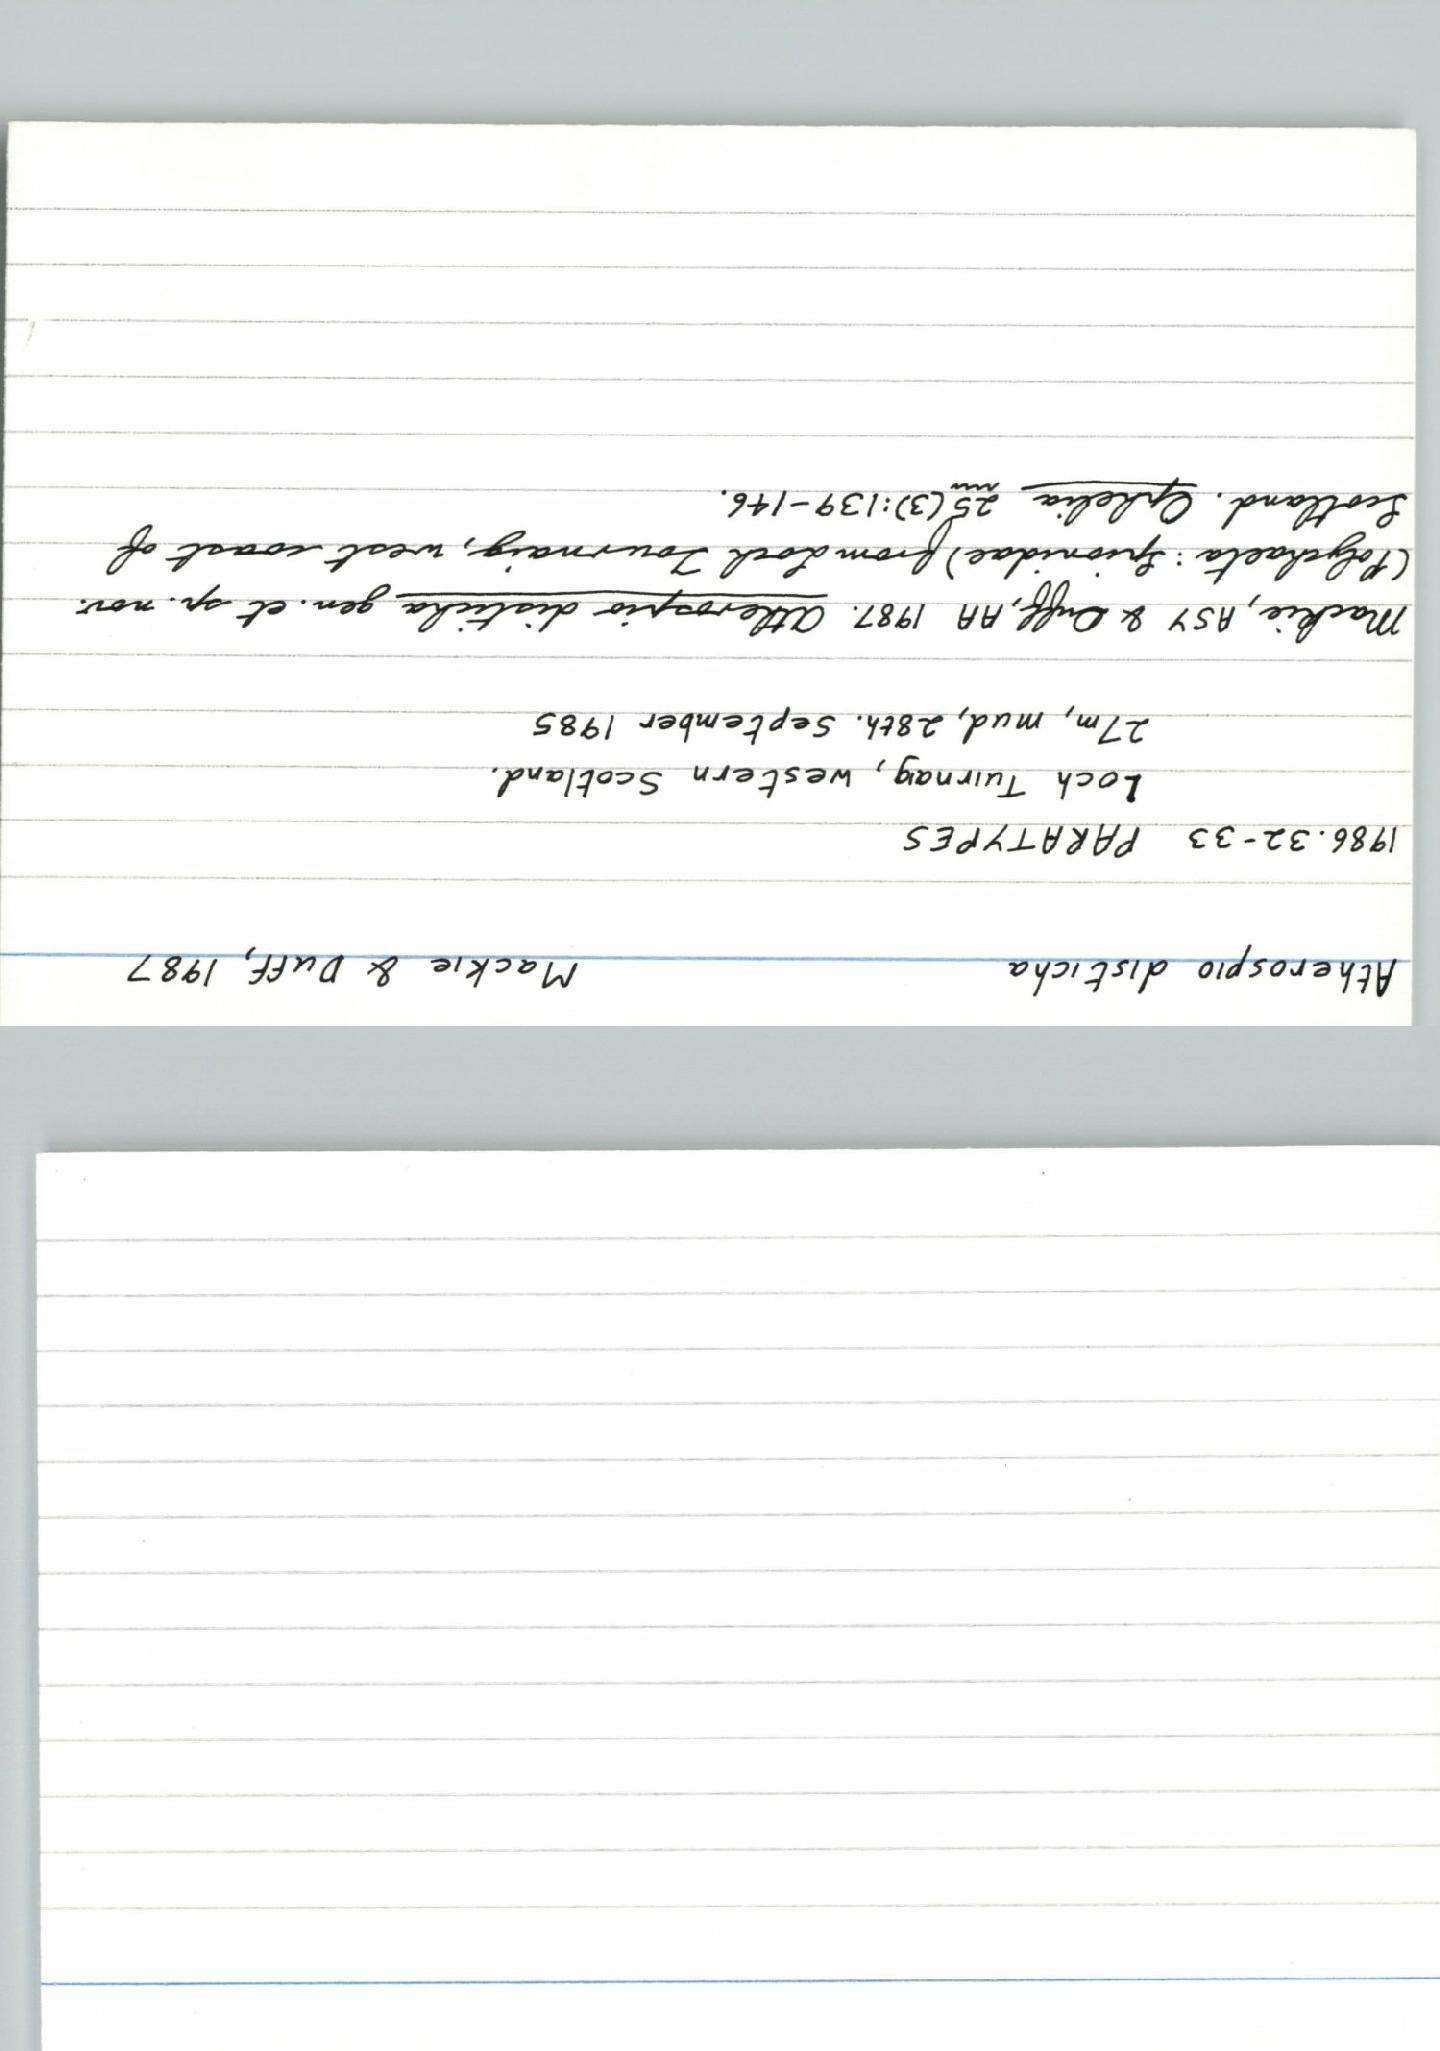 Atherospio disticha Mackie & Duff, 1987
1986.32-33 PARATYPES
Loch Tuirnaig, western Scotland.
27m, mud, 28th. September 1985
Mackie, ASY & Duff, AA 1987. Atherospio disticha gen. et sp. nov.
(Polychaeta: Spionidae) from Loch Tournaig, west coast of
Scotland. Ophelia 25(3):139-146.